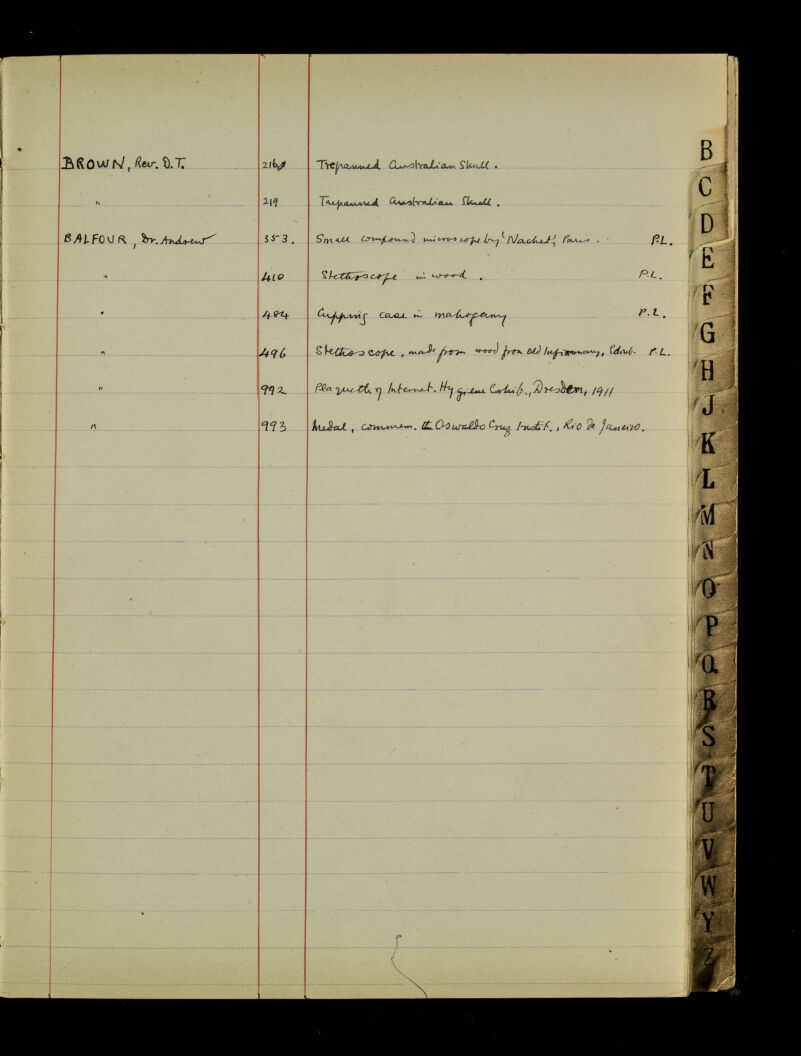 BROWN, Rev. D.T. 218 Trepanned Australian Skull.
" 219 Trepanned Australian Skull.
BALFOUR, Dr. Andrew 353. Small compound microscope by 'Nachet', Paris. P.L.
" 410 Stethoscope in wood. P.L.
" 484 Cupping case in mahogany P.L.
" 496 Stethoscope, made from wood from Old Infirmary, Edinb. P.L.
" 992 Plaquette of Internat. Hygiene Exhib., Dresden, 1911
" 993 Medal, commem. the Oswaldo Cruz Instit., Rio de Janeiro.
B
C
D
E
F
G
H
J
K
L
M
N
O
P
Q
R
S
T
U
V
W
Y
Z